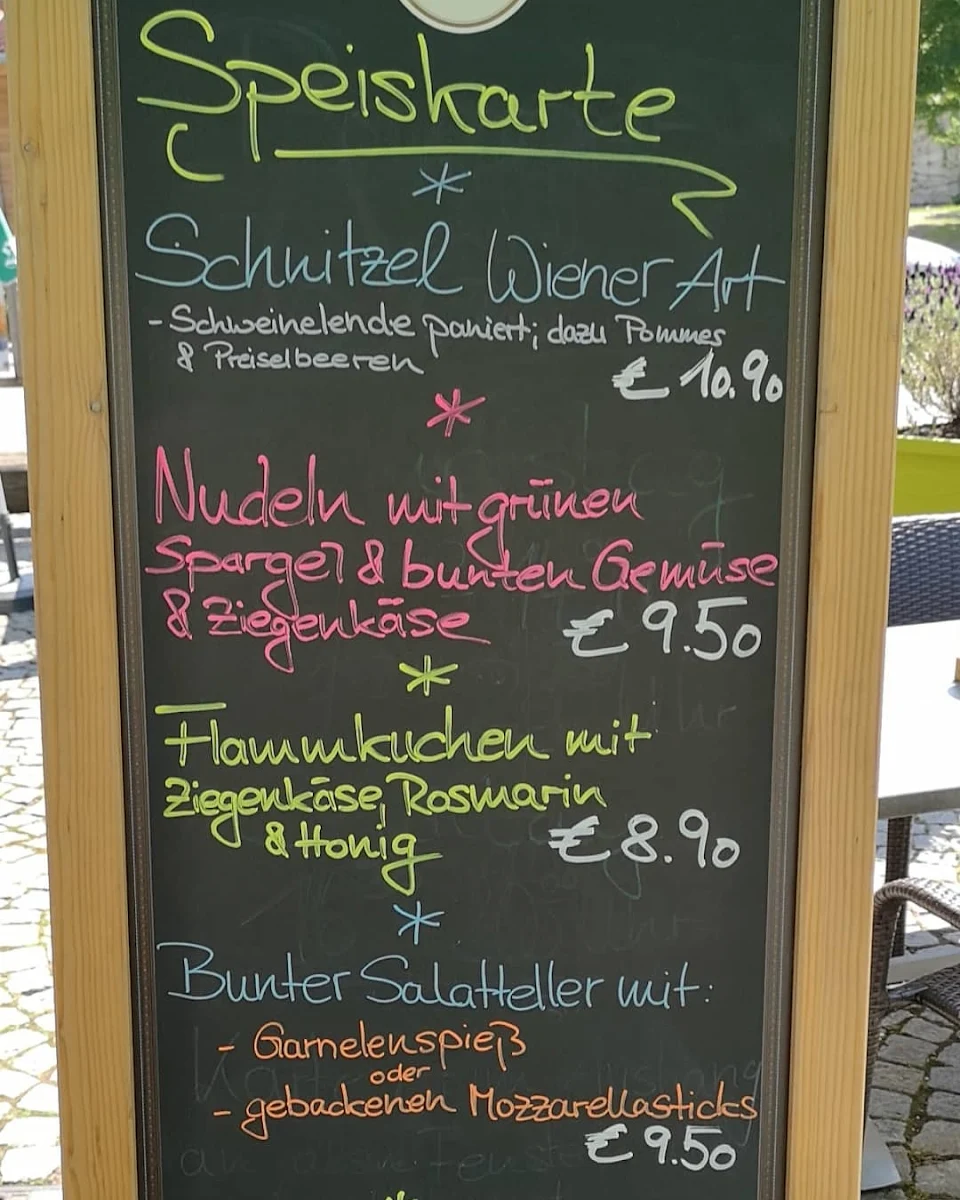 Speiskarte
*
Schnitzel Wiener Art
- Schweinelende paniert; dazu Pommes
& Preiselbeeren
€ 10.90
*
Nudeln mit grünen
Spargel & bunten Gemüse
& Ziegenkäse € 9.50
*
Flammkuchen mit
Ziegenkäse, Rosmarin
& Honig € 8.90
*
Bunter Salatteller mit:
- Garnelenspieß
oder
- gebackenen Mozzarellasticks
€ 9.50